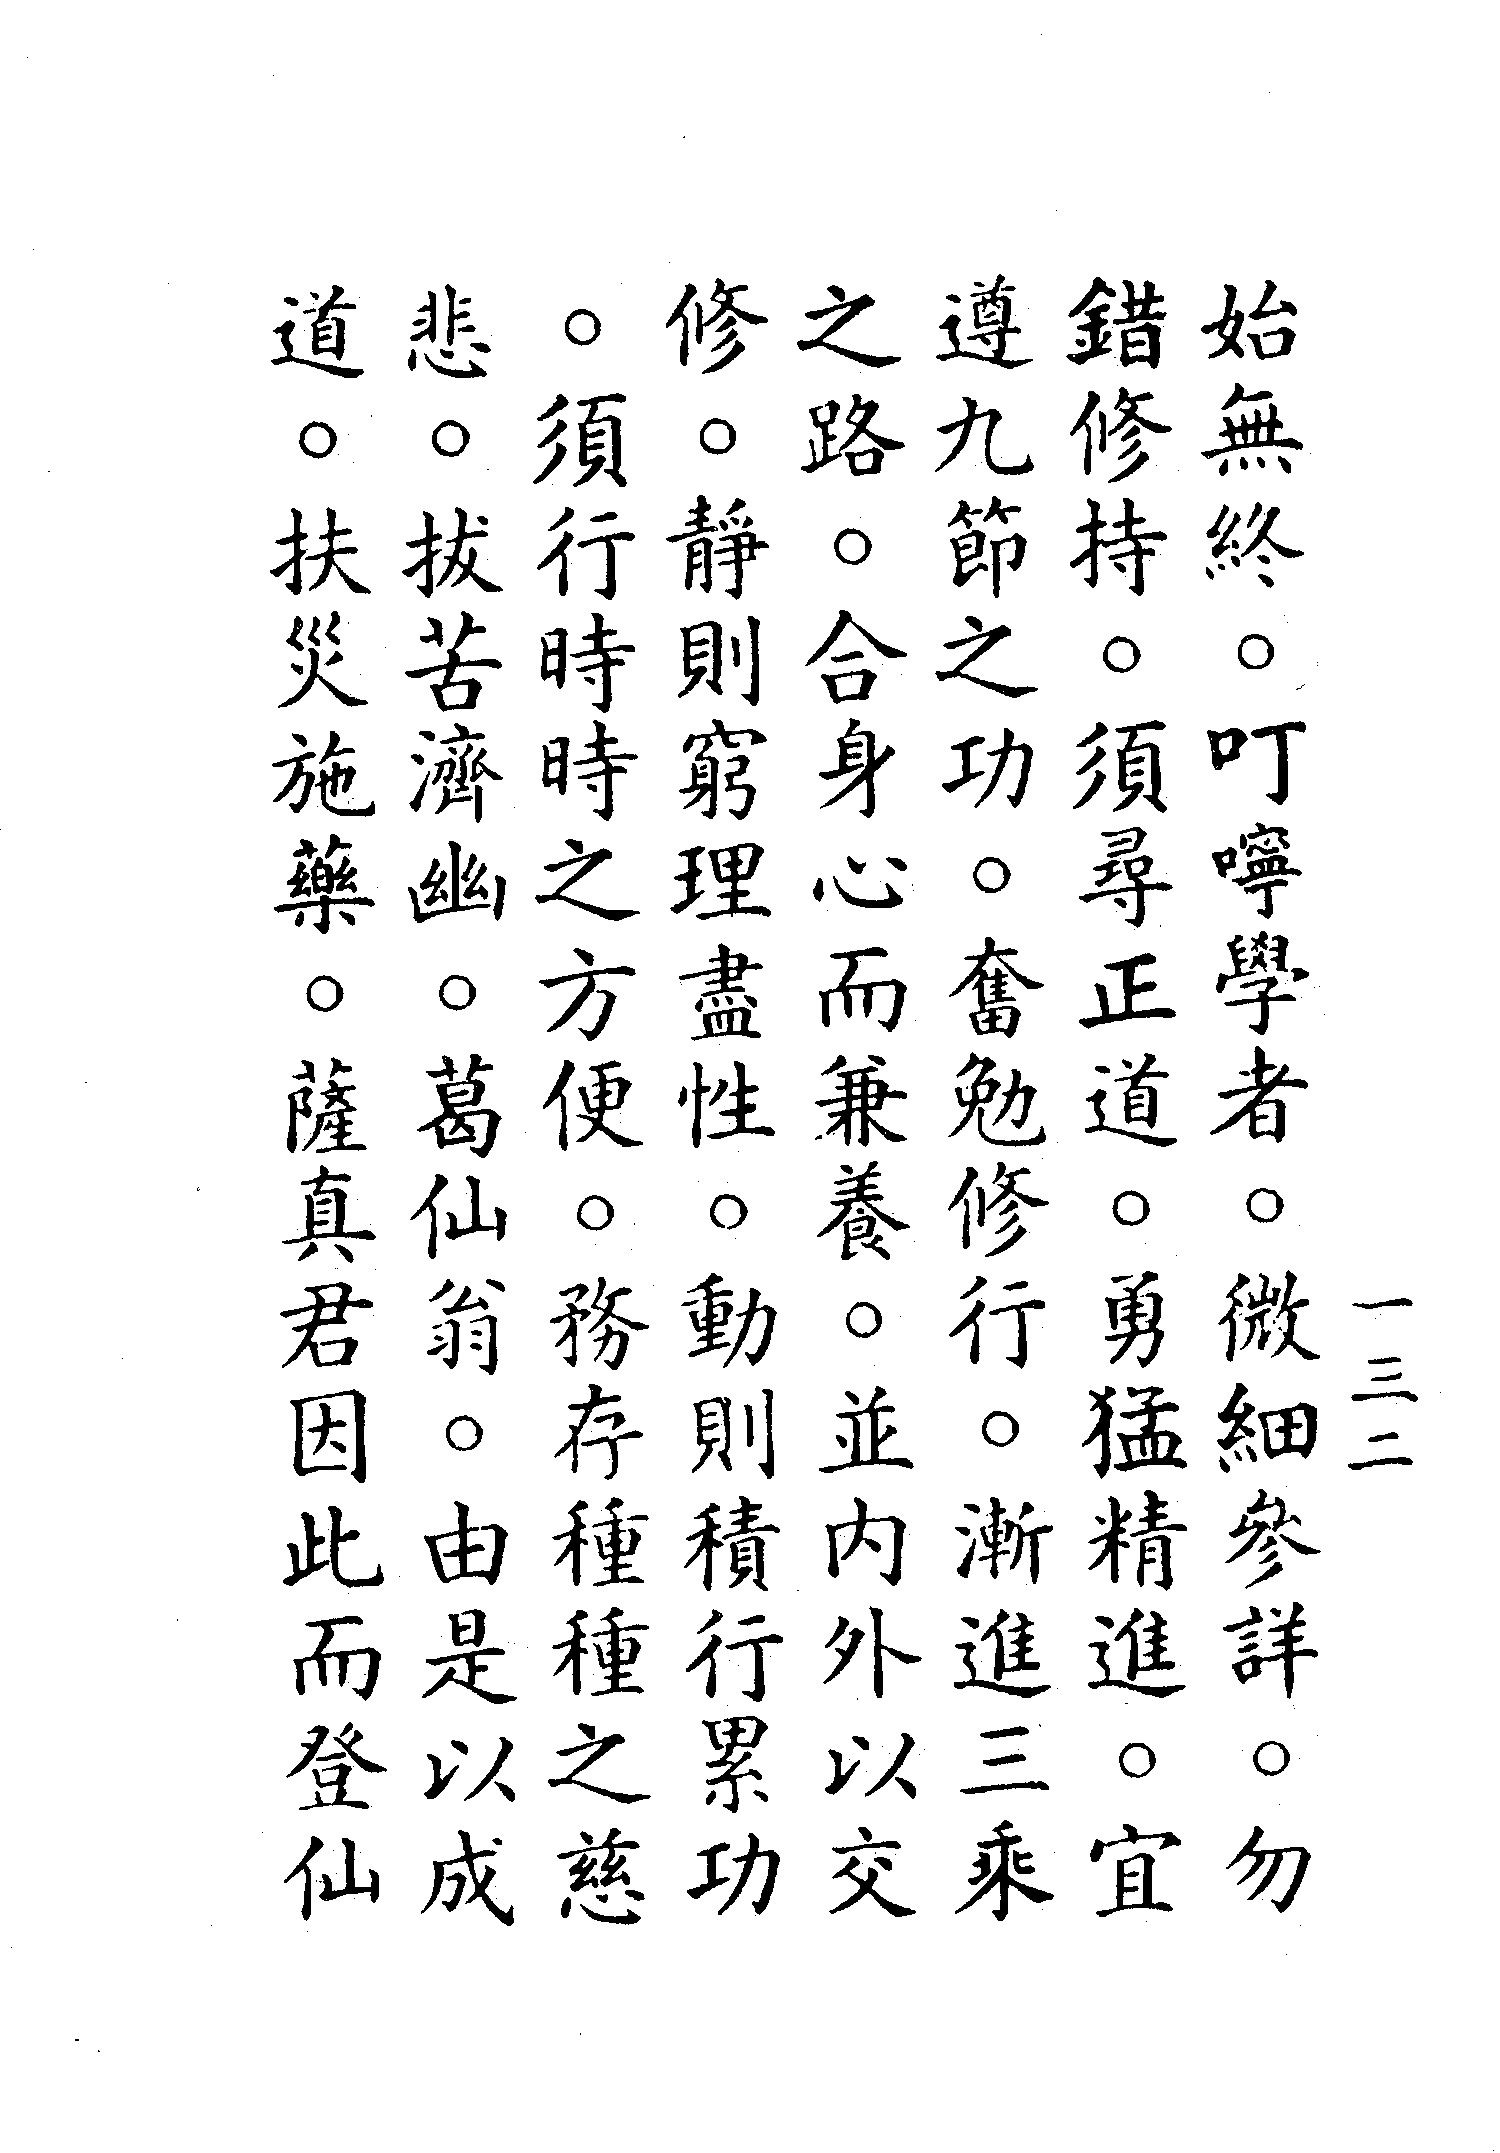 一三二
始無終。叮嚀學者。微細參詳。勿
錯修持。須尋正道。勇猛精進。宜
遵九節之功。奮勉修行。漸進三乘
之路。合身心而兼養。並內外以交
修。靜則窮理盡性。動則積行累功
。須行時時之方便。務存種種之慈
悲。拔苦濟幽。葛仙翁。由是以成
道。扶災施藥。薩真君因此而登仙